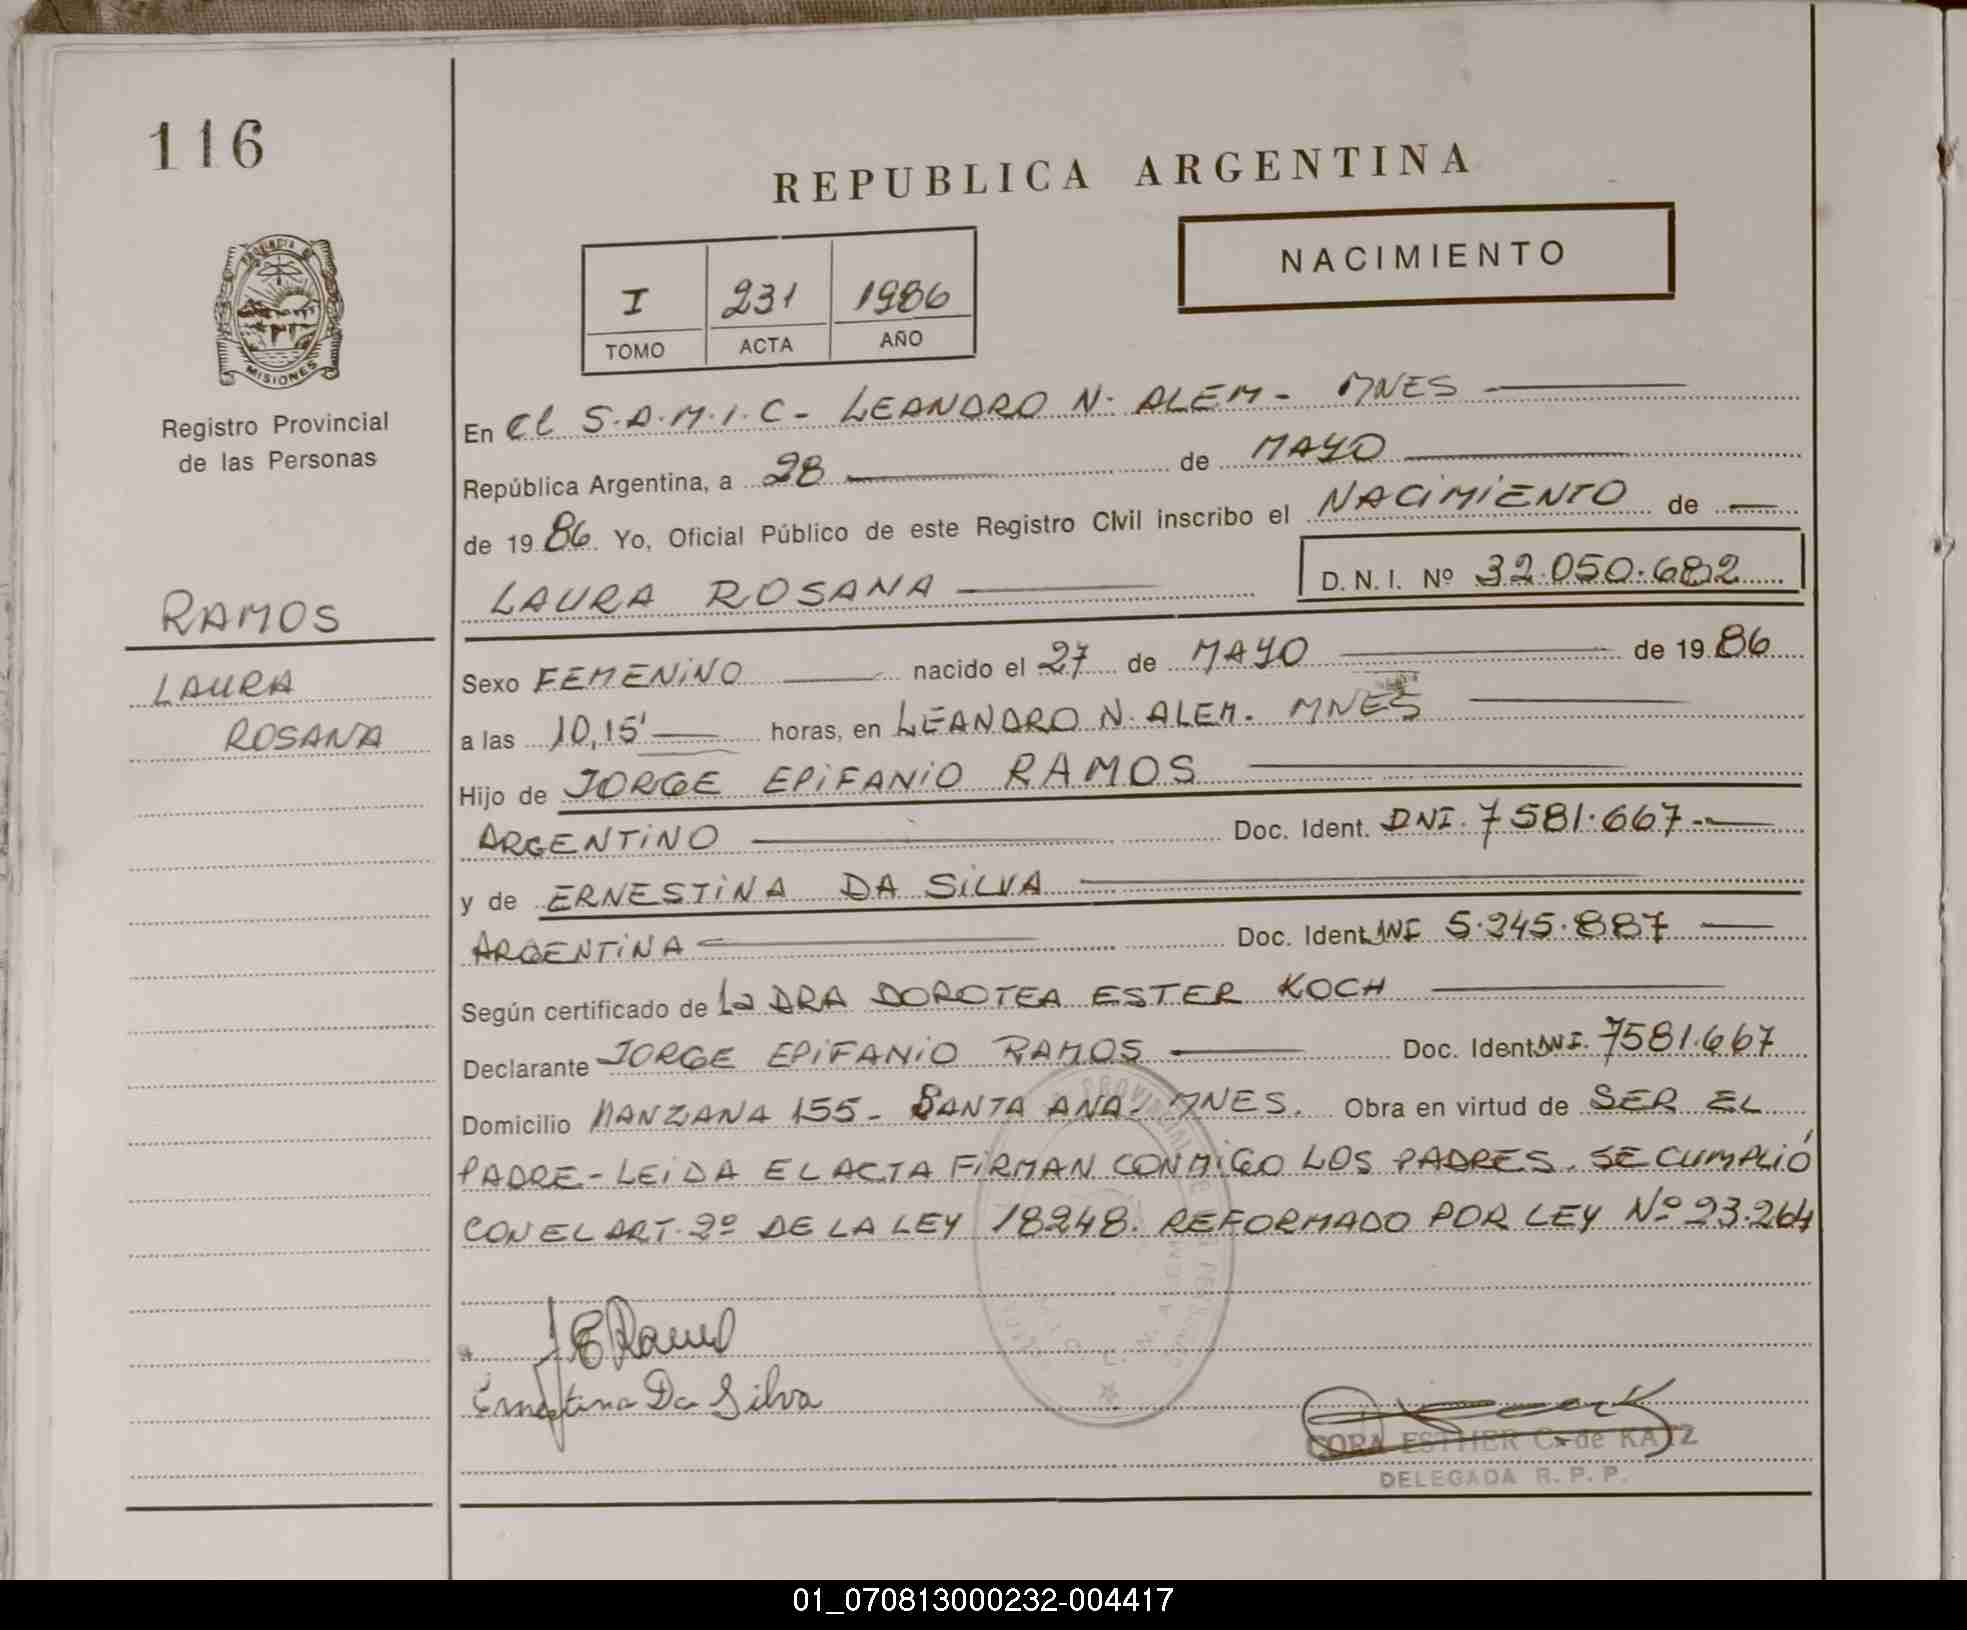 116
REPUBLICA ARGENTINA
NACIMIENTO
I 231 1986
TOMO ACTA AÑO
PROVINCIA DE
MISIONES
Registro Provincial
de las Personas
RAMOS
LAURA
ROSANA
En el S.A.M.I.C- LEANDRO N. ALEM- MNES
República Argentina, a 28 de MAYO
de 1986. Yo, Oficial Público de este Registro Civil inscribo el NACIMIENTO de
LAURA ROSANA D.N.I. Nº 32.050.682
Sexo FEMENINO nacido el 27 de MAYO de 1986
a las 10,15' horas, en LEANDRO N. ALEM. MNES
Hijo de JORGE EPIFANIO RAMOS
ARGENTINO Doc. Ident. DNI. 7581.667-
y de ERNESTINA DA SILVA
ARGENTINA Doc. Ident. DNI 5.245.887
Según certificado de La DRA DOROTEA ESTER KOCH
Declarante JORGE EPIFANIO RAMOS Doc. Ident. DNI. 7581.667
Domicilio MANZANA 155- SANTA ANA- MNES. Obra en virtud de SER EL
PADRE- LEIDA EL ACTA FIRMAN CONMIGO LOS PADRES. SE CUMPLIÓ
CON EL ART. 2º DE LA LEY 18248. REFORMADO POR LEY Nº 23.264
J E Ramos
Ernestina Da Silva
CORA ESTHER C. de KATZ
DELEGADA R. P. P.
01_070813000232-004417